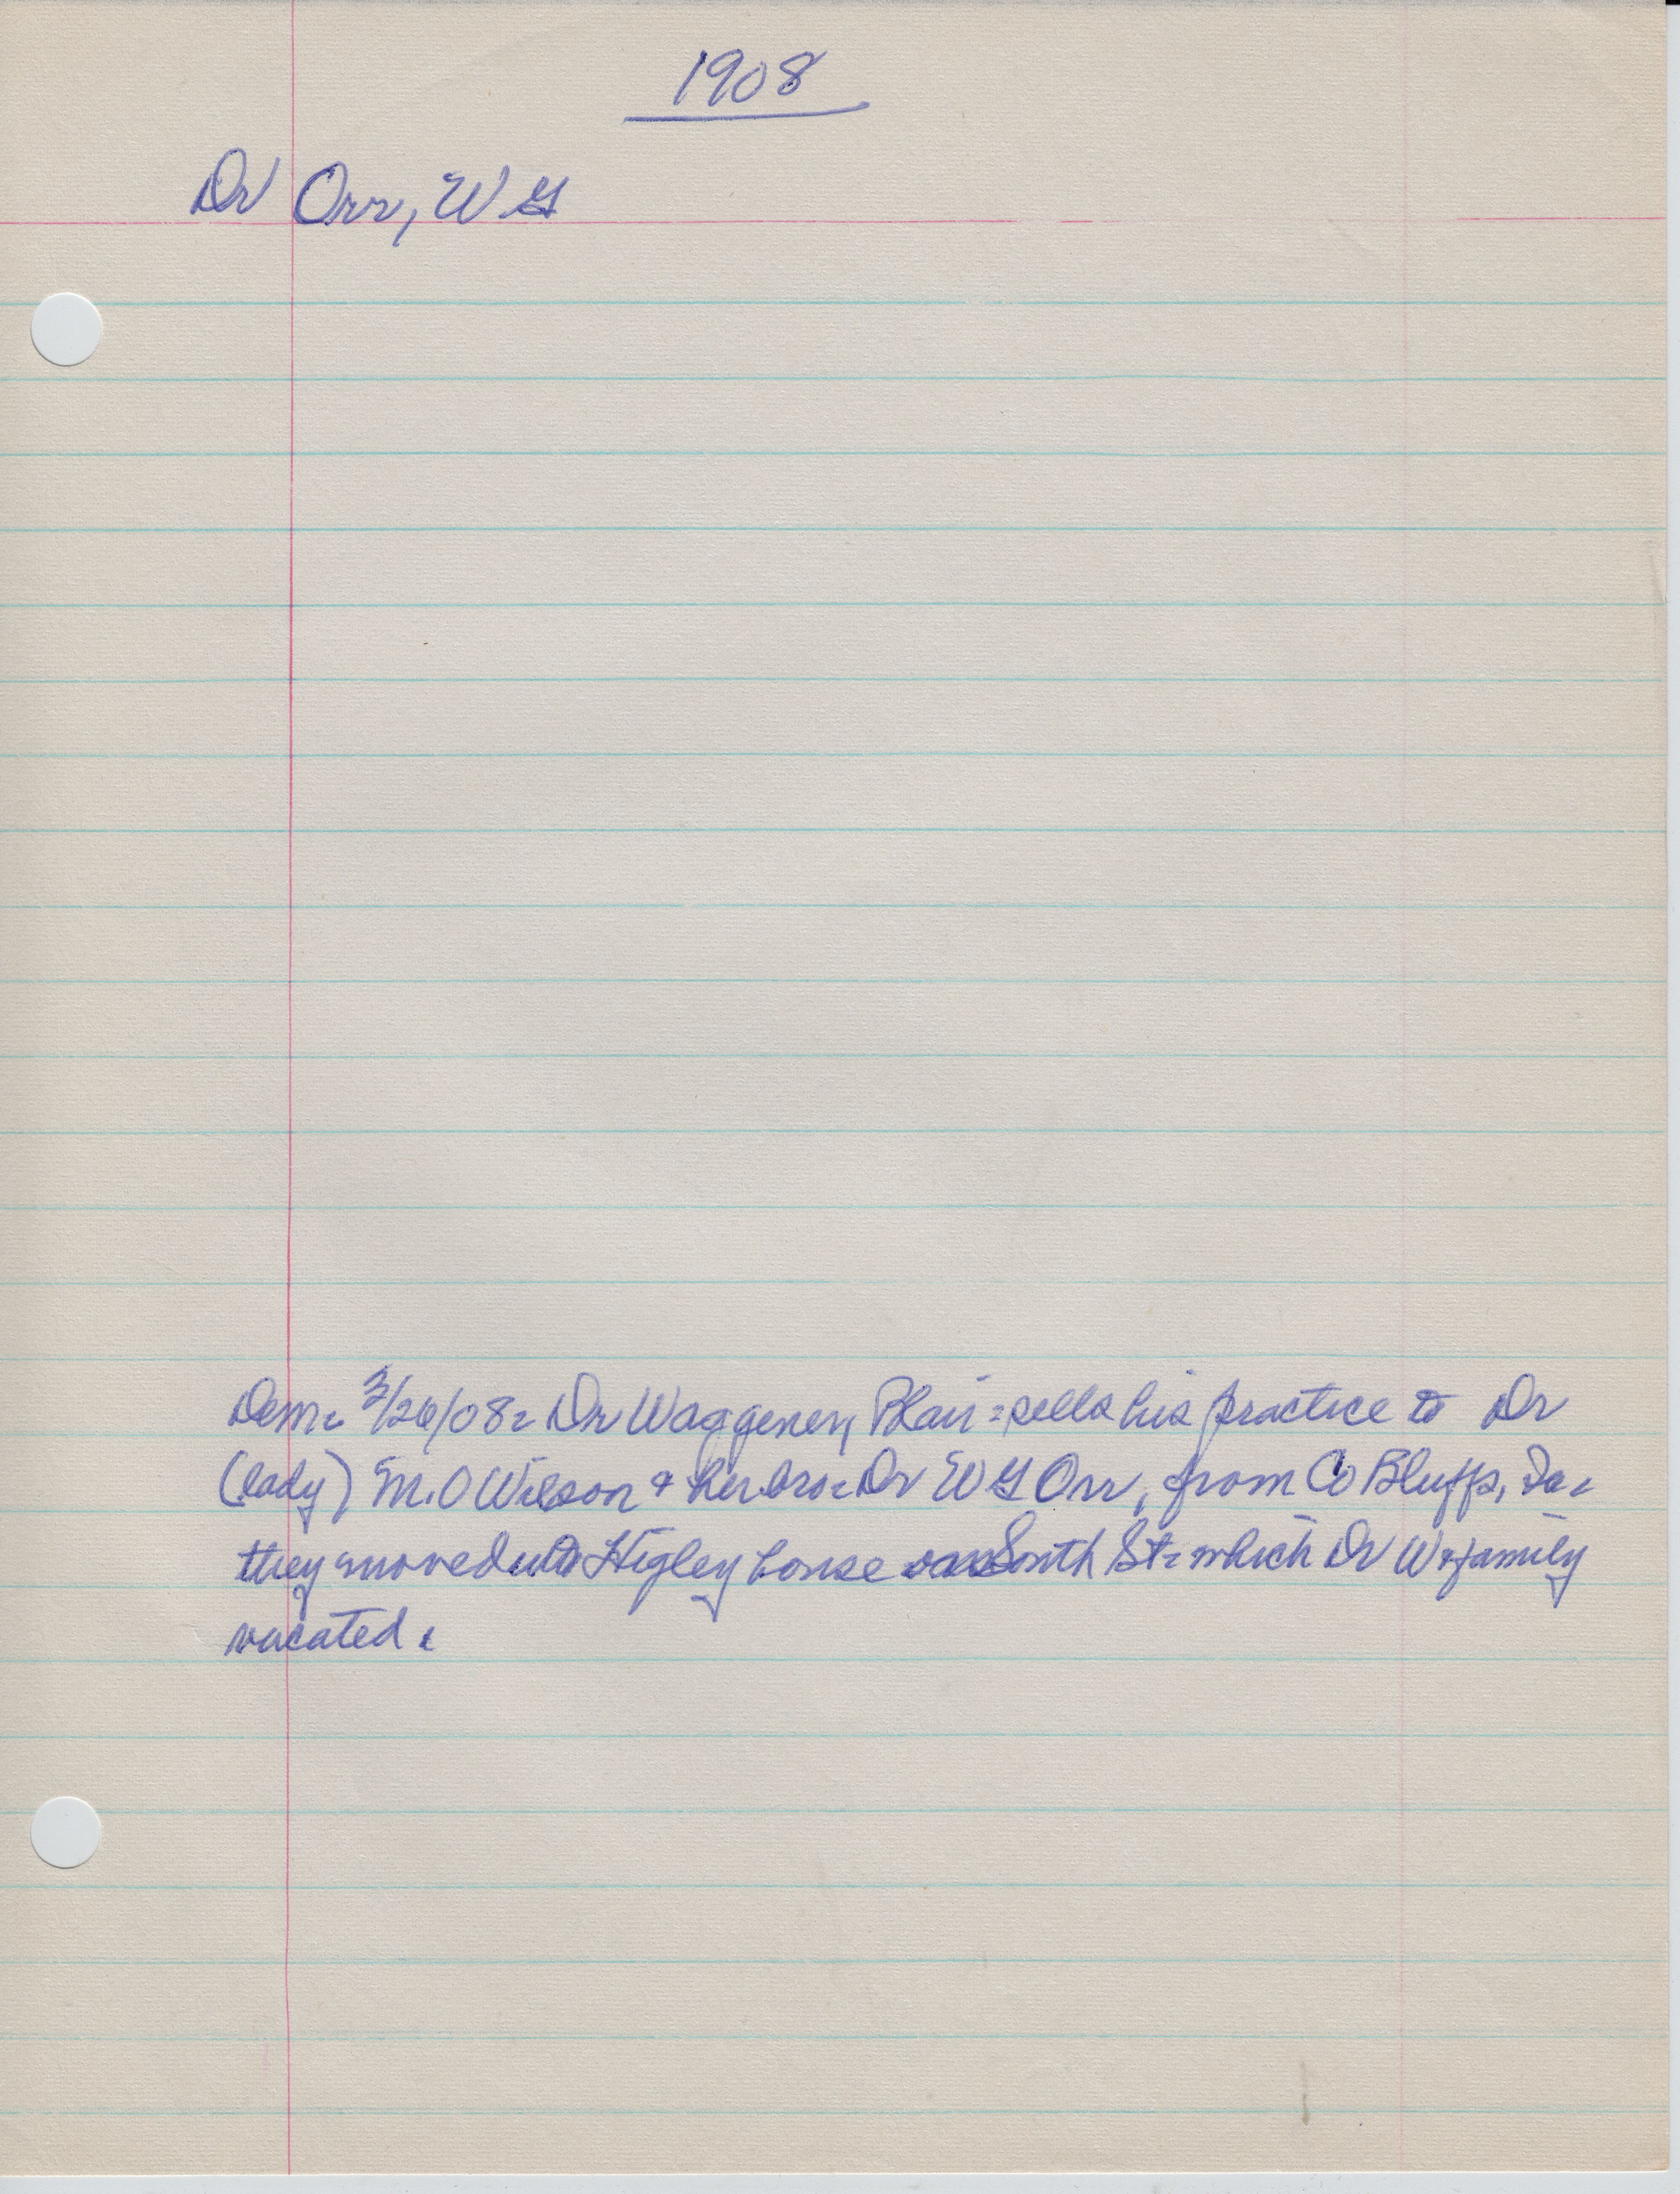 1908
Dr Orr, W G
Dem- 3/26/08- Dr Waggener, Blair - sells his practice to Dr
(lady) M.O Wilson & her bro- Dr W G Orr, from Co Bluffs, Ia-
they moved into Higley house on South St- which Dr W & family
vacated.